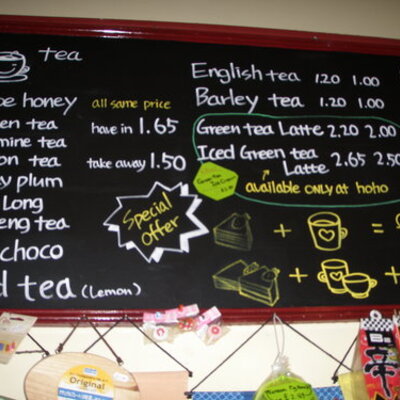 tea
honey all same price
tea have in 1.65
mine tea
tea take away 1.50
plum
Long
tea
choco
tea (Lemon)
Special
offer
English tea 1.20 1.00
Barley tea 1.20 1.00
Green tea Latte 2.20 2.00
Iced Green tea
Latte 2.65 2.50
available ONLY at hoho
Green tea
Ice Cream
+ =
+ +
Original